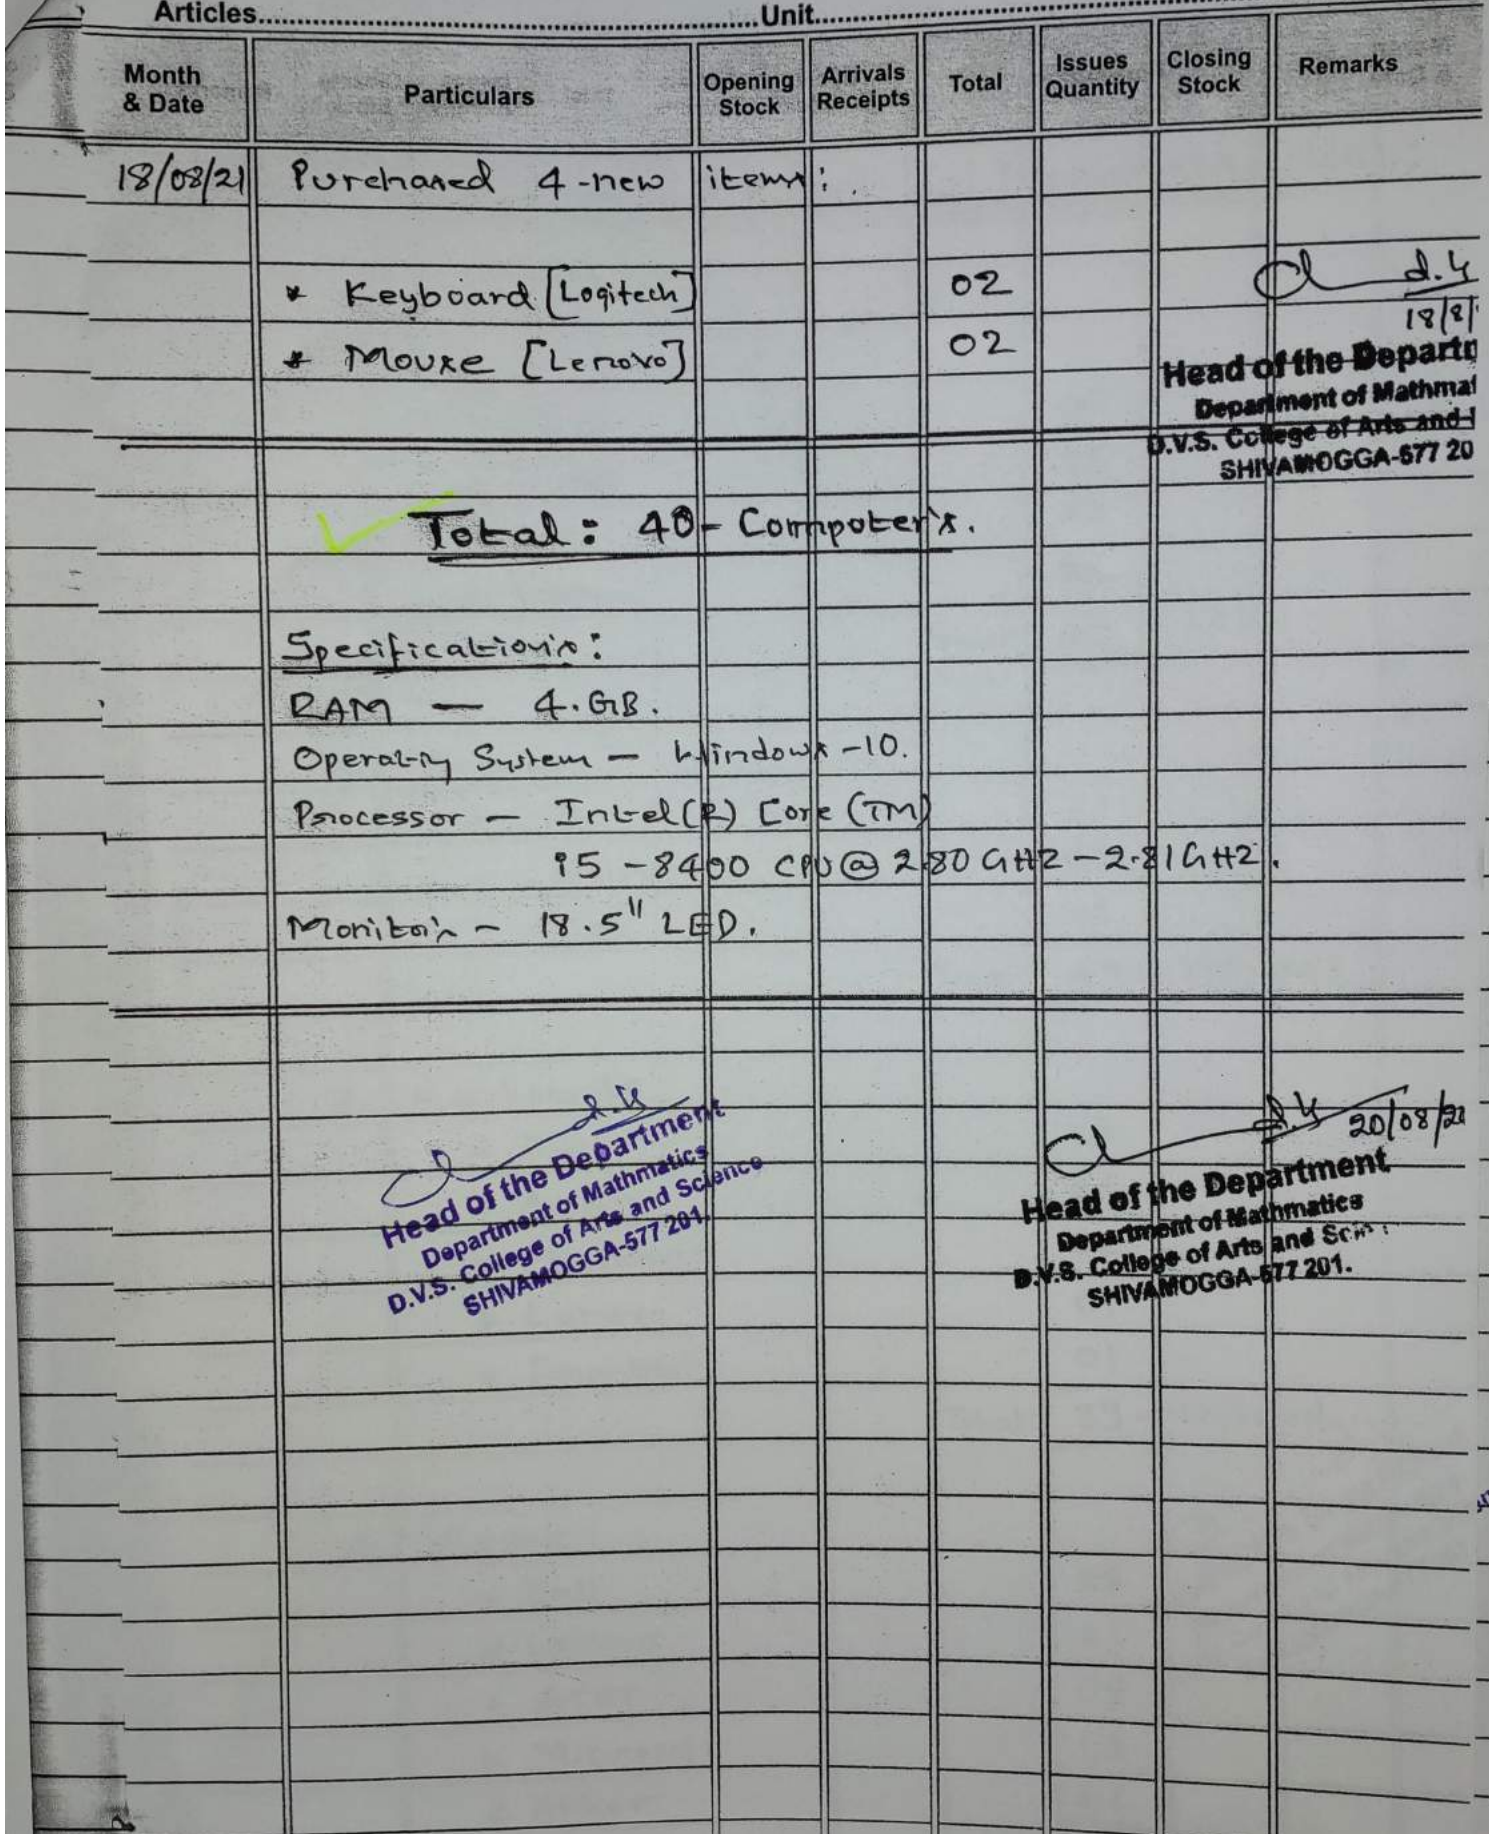 Articles.......... Unit..........
Month & Date Particulars Opening Stock Arrivals Receipts Total Issues Quantity Closing Stock Remarks
18/08/21 Purchased 4-new items:
* Keyboard [Logitech] 02
18/8/
* Mouse [Lenovo] 02
Head of the Departm
Department of Mathmat
D.V.S. College of Arts and
SHIVAMOGGA-577 20
Total: 40-Computer's.
Specification's:
RAM — 4.GB.
Operating System — Windows-10.
Processor — Intel(R) Core (TM)
i5-8400 CPU @ 2.80 GHZ-2.81GHZ.
Monitor's - 18.5" LED.
Head of the Department
Department of Mathmatics
D.V.S. College of Arts and Science
SHIVAMOGGA-577 201.
20/08/21
Head of the Department
Department of Mathmatics
D.V.S. College of Arts and Scin
SHIVAMOGGA-577 201.